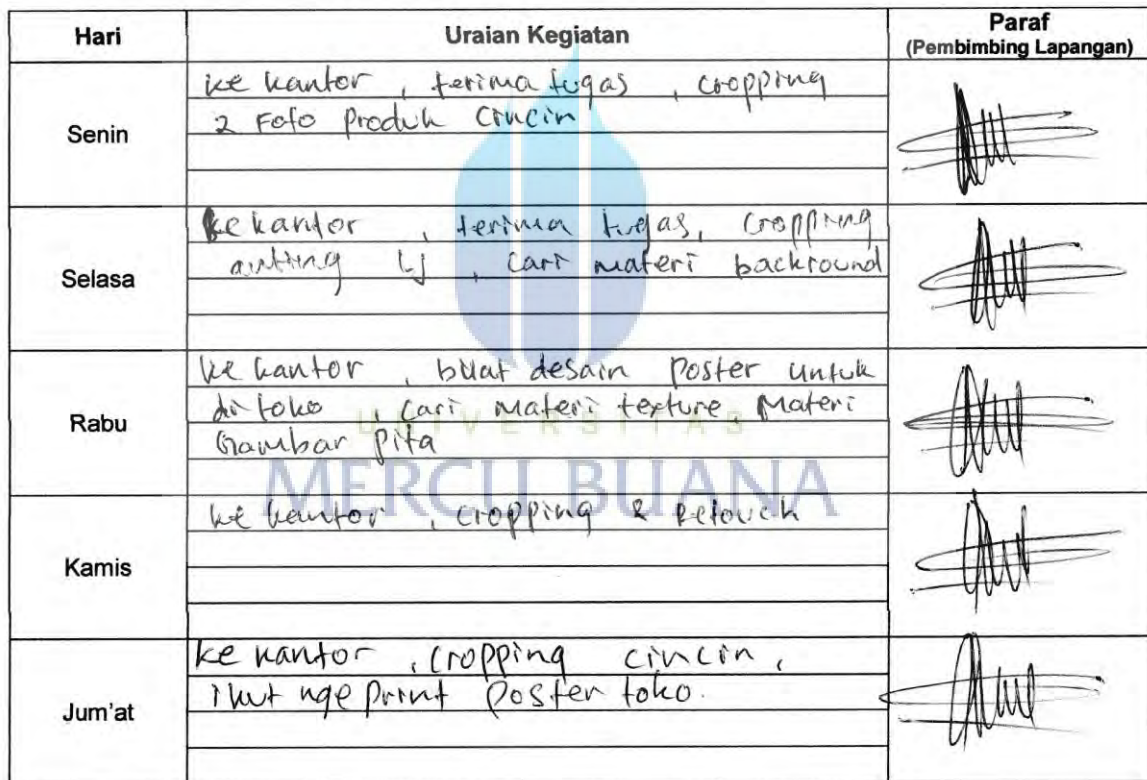 Hari Uraian Kegiatan Paraf
(Pembimbing Lapangan)
Senin
ke kantor , terima tugas , cropping
2 Foto Produk Cincin
Selasa
ke kantor , terima tugas, cropping
anting LJ , cari materi backround
Rabu
ke kantor , buat desain Poster untuk
di toko , cari materi texture, Materi
Gambar pita
UNIVERSITAS
MERCU BUANA
Kamis
ke kantor , cropping & Retouch
Jum'at
ke kantor , cropping cincin ,
ikut ngeprint Poster toko.